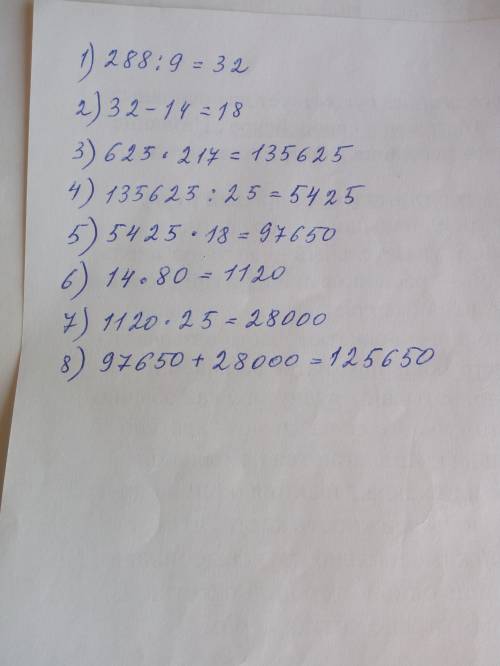 1) 288 : 9 = 32
2) 32 - 14 = 18
3) 625 · 217 = 135625
4) 135625 : 25 = 5425
5) 5425 · 18 = 97650
6) 14 · 80 = 1120
7) 1120 · 25 = 28000
8) 97650 + 28000 = 125650